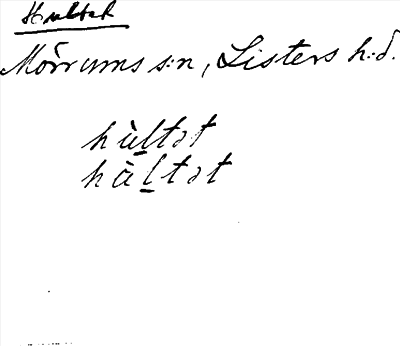 Hultet
Mörrums s:n, Listers h:d.
hùl̲tət
hàl̲tət